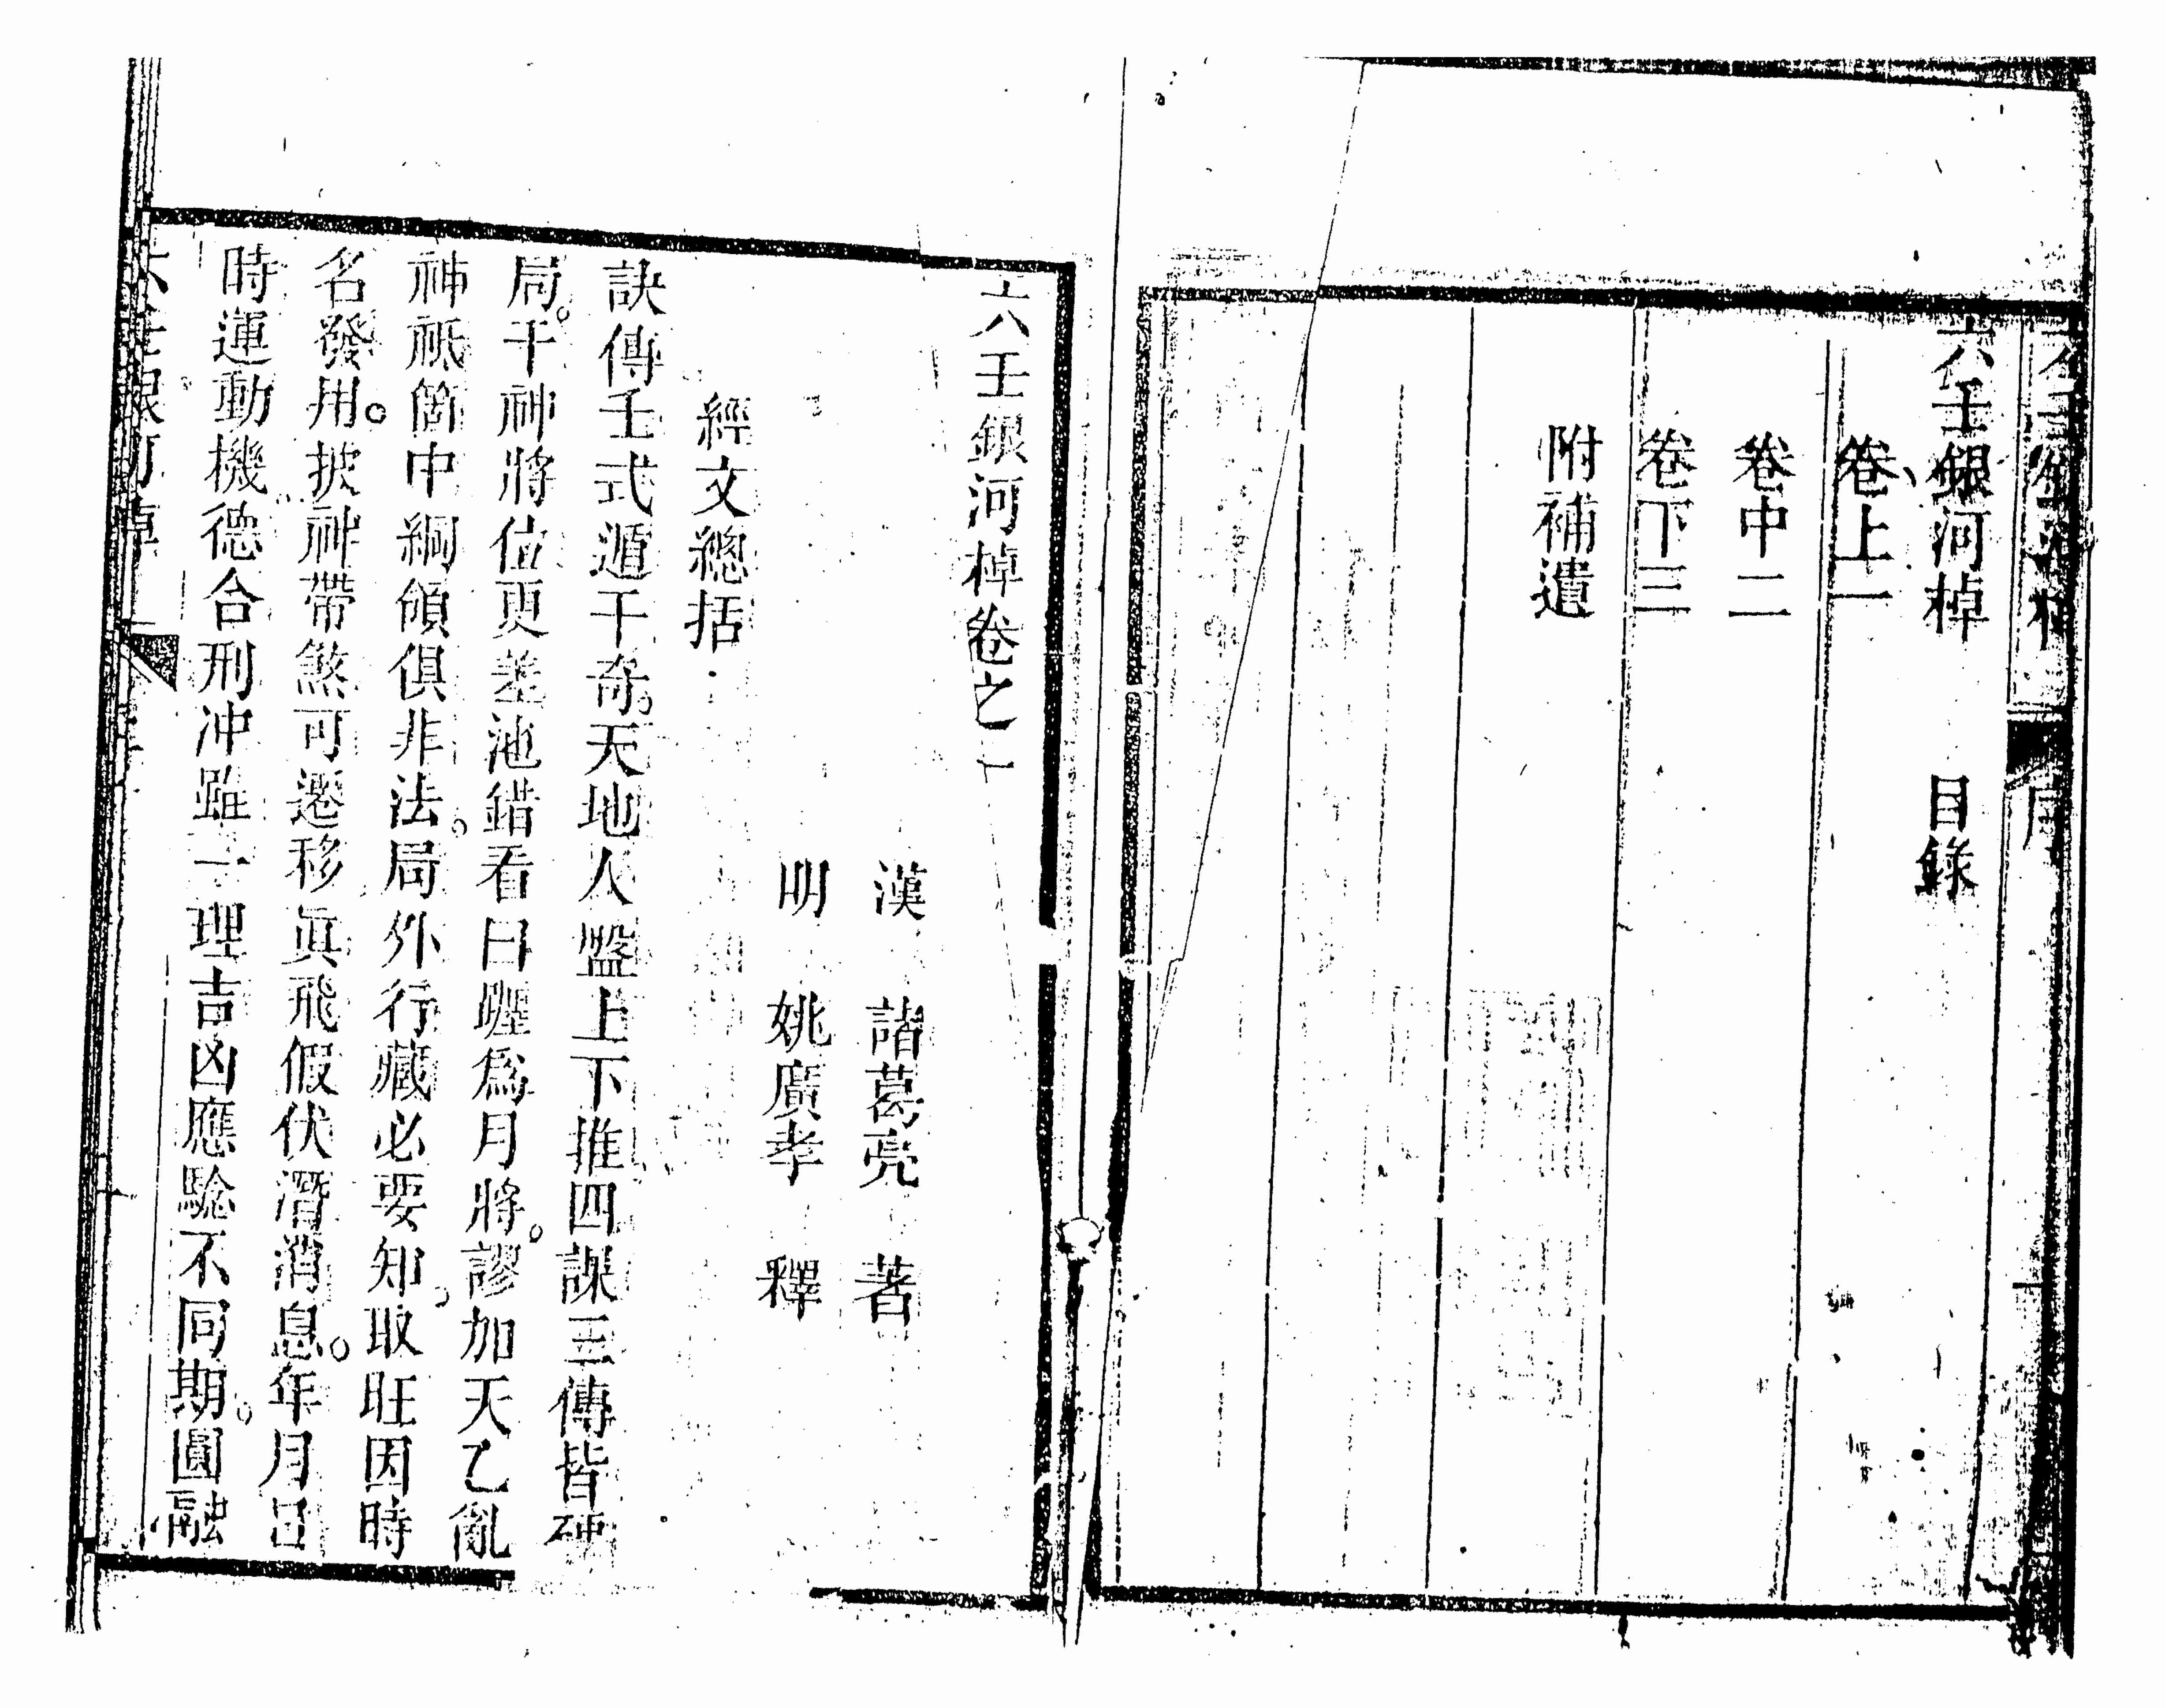 六壬銀河棹　目錄
卷上一
卷中二
卷下三
附補遺
六壬銀河棹卷之一
漢　諸葛亮　著
明　姚廣孝　釋
經文總括
訣傳壬式遁干奇。天地人盤上下推四課三傳皆硬
局。干神將值更差池錯看日躔爲月將。謬加天乙亂
神祗箇中綱領俱非法。局外行藏必要知。取旺因時
名發用。披神帶煞可遷移眞飛假伏潛消息。年月日
時運動機德合刑冲雖一理吉凶應驗不同期。圓融
六壬銀河棹